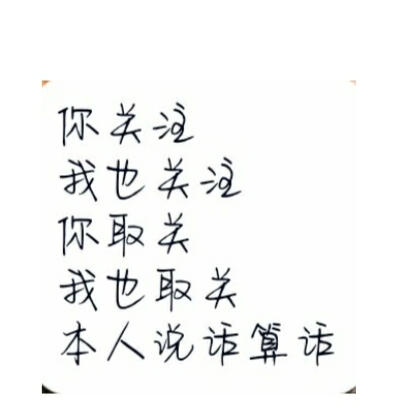 你关注
我也关注
你取关
我也取关
本人说话算话